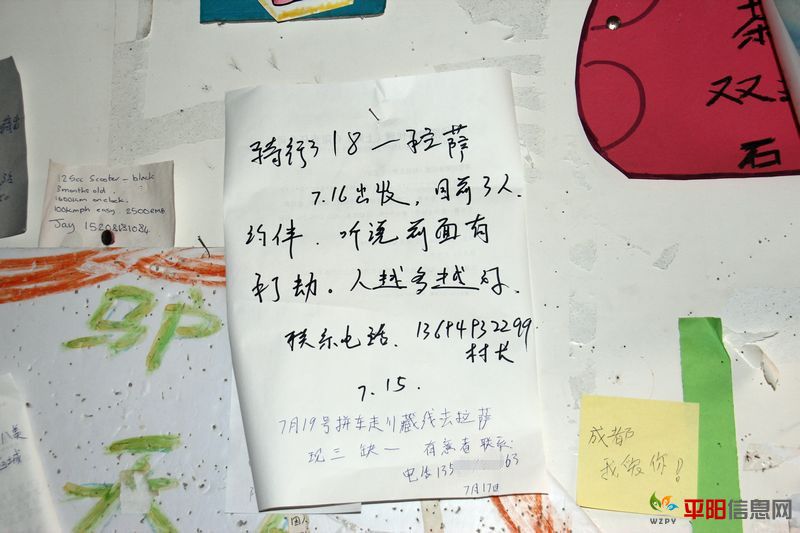 骑行318—拉萨
7.16出收,目前3人
约伴.听说前面有
打劫。人越多越好.
联系电话. 13694932299
村长
7.15.
7月19号拼车走川藏线去拉萨
现三缺一 有意者联系:
电话135 63
7月17日
125cc Scooter – black
3 months old.
1600km on clock.
100kmph easy. 2500RMB
Jay 15208181084
双
石
成都
我做你!
平阳信息网
WZPY